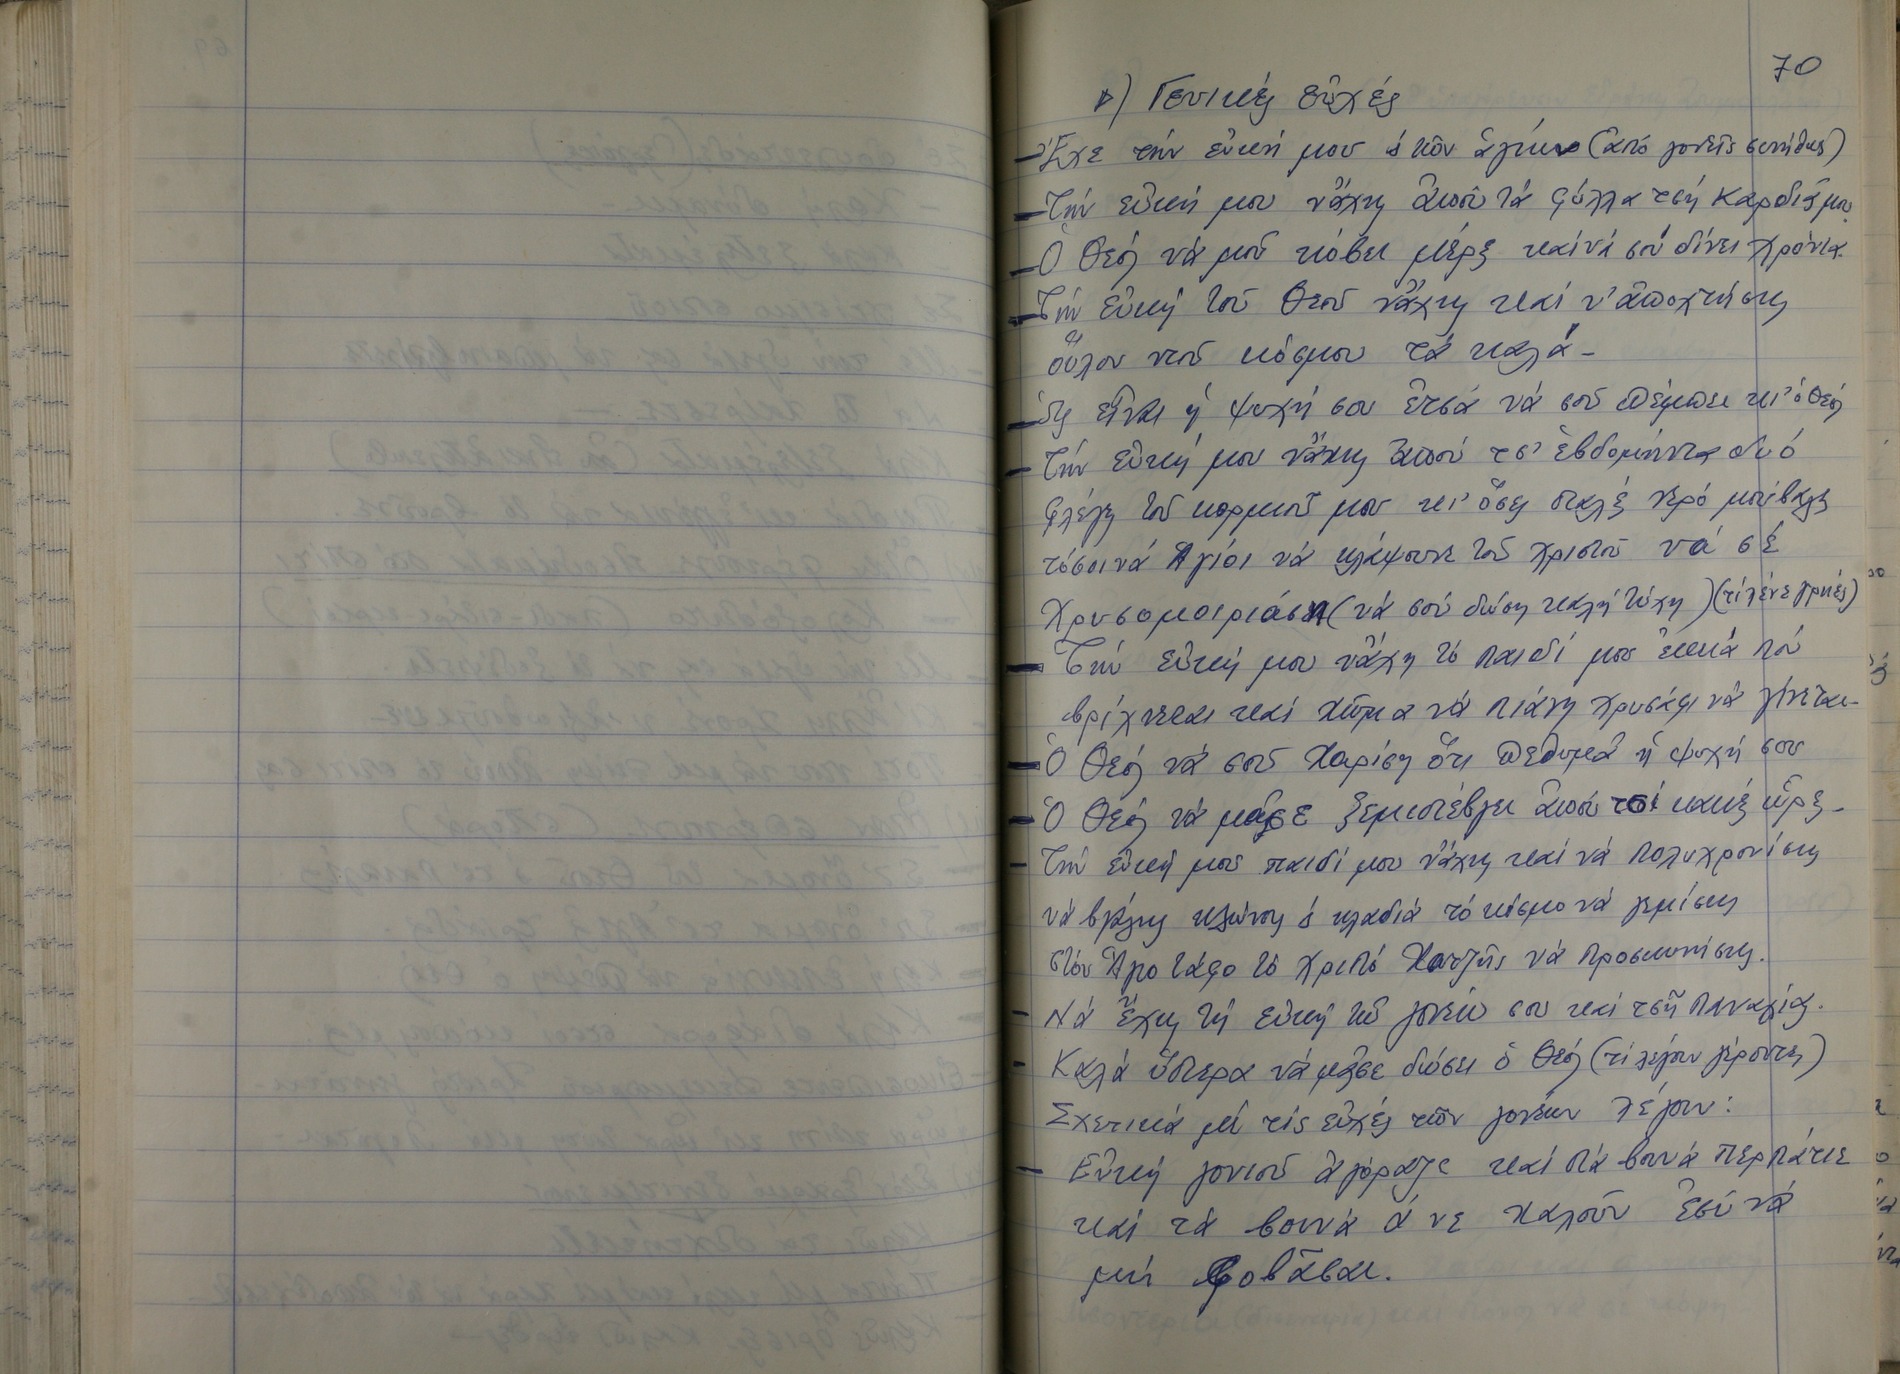 70
▷) Γενικές εὐχές
- Ἔχε τήν εὐκή μου ὁ κῶν ἁγίων (ἀπό γονεῖς συνήθως)
- Τήν εὐκή μου νἄχῃς ἀπού τά φύλλα τσή καρδιᾶς μου
- Ὁ Θεός νά μοῦ κόβει μέρες καί νά σοῦ δίνει χρόνια.
- Τήν εὐκή τοῦ Θεοῦ νἄχῃς καί ν' ἀποχτήσῃς
οὕλου ντοῦ κόσμου τά καλά -
- ὡς εἶναι ἡ ψυχή σου ἐτσά νά σοῦ πέμπει κι' ὁ Θεός
- Τήν εὐκή μου νἄχῃς ἀπού τσ' ἑβδομήντα δυό
φλέγες τοῦ κορμιοῦ μου κι' ὅσες σταλές νερό μοὔβαλες
τόσοι νά Ἁγιοι νά κλάψουνε τοῦ Χριστοῦ νά σέ
χρυσομοιριάσῃ (νά σοῦ δώσῃ καλή τύχη) (τί λένε γριές)
- Τήν εὐκή μου νἄχῃ τό παιδί μου ἐκειά πού
βρίχνεται καί χῶμα νά πιάνῃ χρυσάφι νά γίνεται -
- Ὁ Θεός νά σοῦ χαρίσῃ ὅτι πεθυμᾶ ἡ ψυχή σου
- Ὁ Θεός νά μᾶσε ξεμιστέβγει ἀπού τσί κακές ὧρες -
- Τήν εὐκή μου παιδί μου νἄχῃς καί νά πολυχρονίσῃς
νά βγάλῃς κλώνους κλαδιά τό κόσμο νά γεμίσῃς
στόν Ἅγιο τάφο τό Χριστό Χατζῆς νά προσκυνήσῃς.
- Νά ἔχῃς τή εὐκή τῶ γονέω σου καί τσῆ Παναγίας.
- Καλά ὕστερα νά μᾶσε δώσει ὁ Θεός (τί λέγουν γέροντες)
Σχετικά μέ τίς εὐχές τῶν γονέων λέγουν:
- Εὐκή γονιοῦ ἀγόραζε καί στά βουνά περπάτιε
καί τά βουνά ἄ νε χαλοῦν ἐσύ νά
μή φοβᾶσαι.